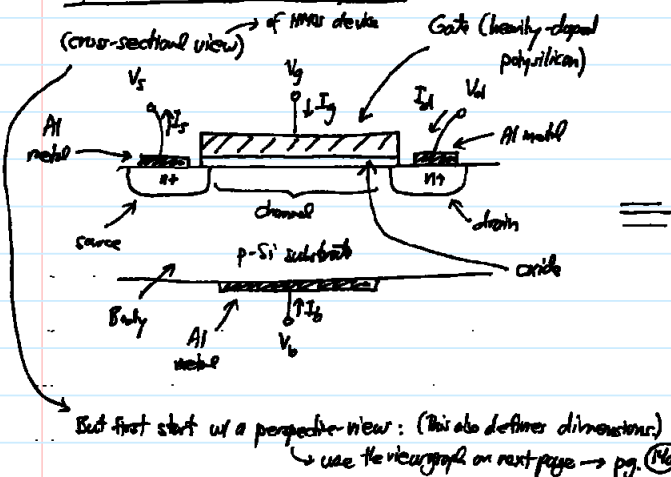 (cross-sectional view) of NMOS device
Gate (heavily-doped
polysilicon)
Vs
Vg
Is
Ig
Id
Vd
Al
metal
Al metal
n+
n+
channel
source
drain
p-Si substrate
oxide
Body
Ib
Al
metal
Vb
But first start w/ a perspective-view: (This also defines dimensions.)
use the viewgraph on next page → pg.